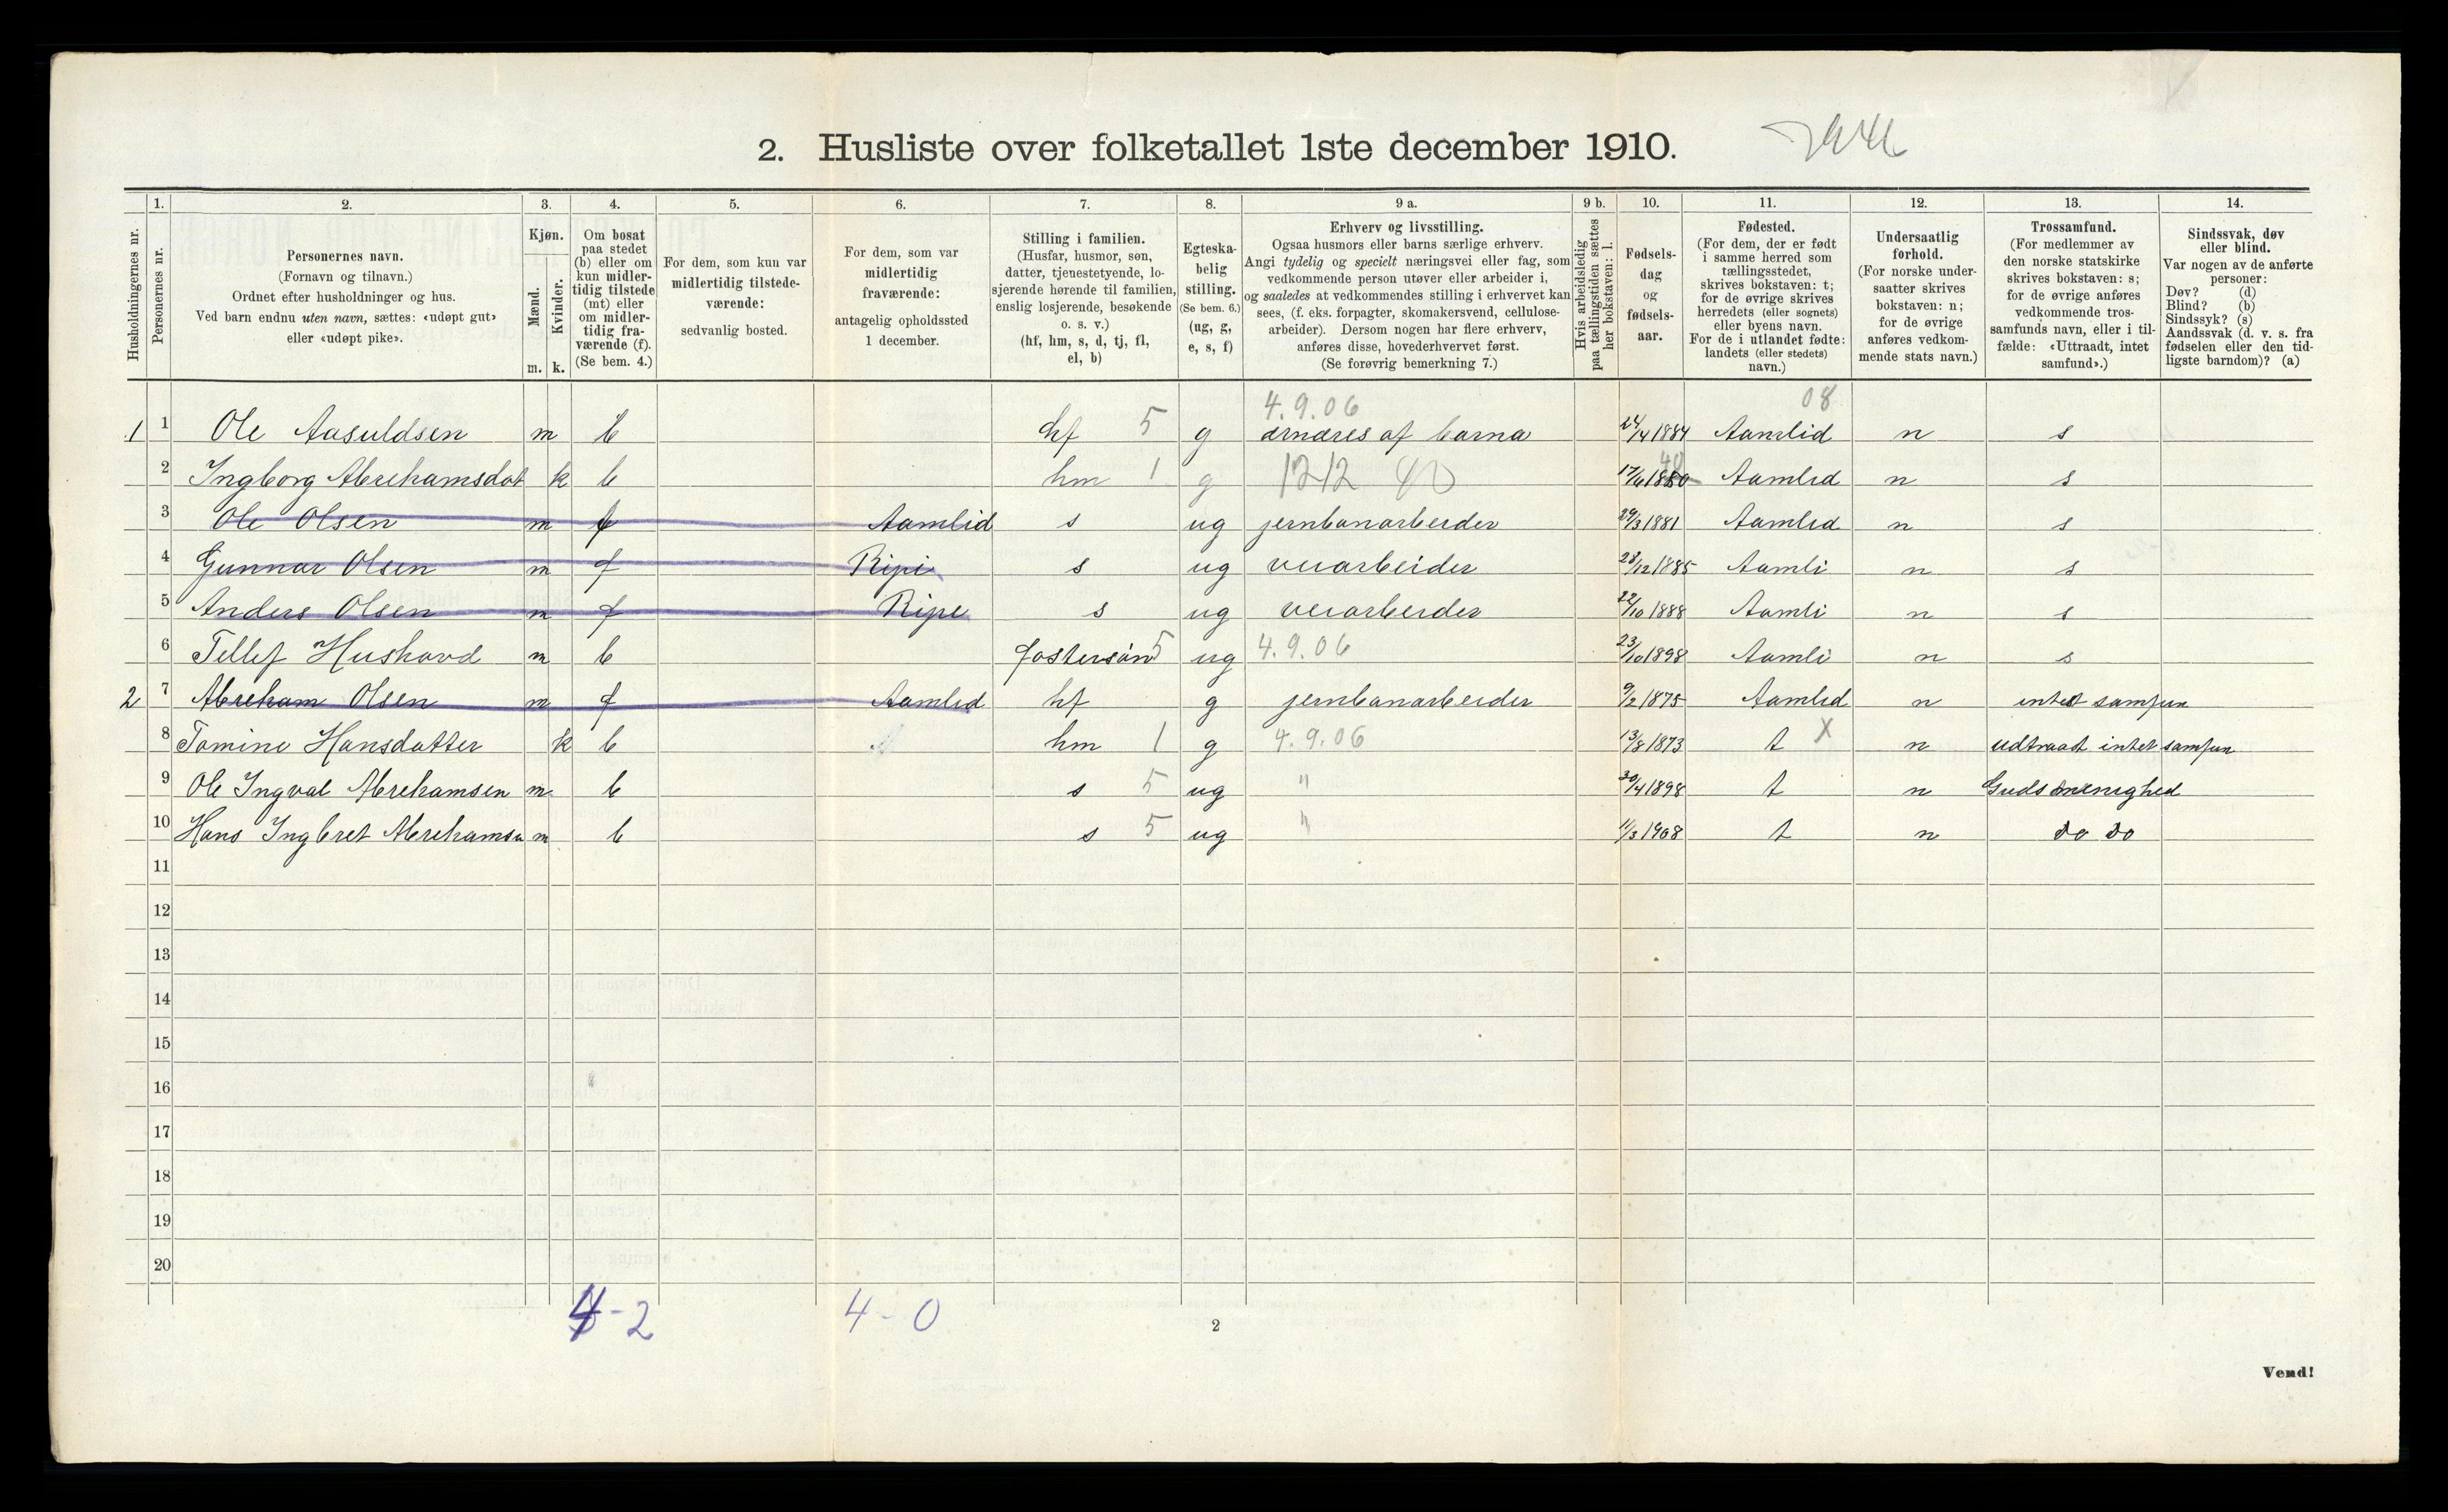 2. Husliste over folketallet 1ste december 1910.
Husholdningernes nr.
1. Personernes nr.
2. Personernes navn. (Fornavn og tilnavn.) Ordnet efter husholdninger og hus. Ved barn endnu uten navn, sættes: «udøpt gut» eller «udøpt pike».
3. Kjøn. Mænd. m. Kvinder. k.
4. Om bosat paa stedet (b) eller om kun midlertidig tilstede (mt) eller om midlertidig fraværende (f). (Se bem. 4.)
5. For dem, som kun var midlertidig tilstedeværende: sedvanlig bosted.
6. For dem, som var midlertidig fraværende: antagelig opholdssted 1 december.
7. Stilling i familien. (Husfar, husmor, søn, datter, tjenestetyende, losjerende hørende til familien, enslig losjerende, besøkende o. s. v.) (hf, hm, s, d, tj, fl, el, b)
8. Egteskabelig stilling. (Se bem. 6.) (ug, g, e, s, f)
9 a. Erhverv og livsstilling. Ogsaa husmors eller barns særlige erhverv. Angi tydelig og specielt næringsvei eller fag, som vedkommende person utøver eller arbeider i, og saaledes at vedkommendes stilling i erhvervet kan sees, (f. eks. forpagter, skomakersvend, cellulosearbeider). Dersom nogen har flere erhverv, anføres disse, hovederhvervet først. (Se forøvrig bemerkning 7.)
9 b. Hvis arbeidsledig paa tællingstiden sættes her bokstaven: l.
10. Fødselsdag og fødselsaar.
11. Fødested. (For dem, der er født i samme herred som tællingsstedet, skrives bokstaven: t; for de øvrige skrives herredets (eller sognets) eller byens navn. For de i utlandet fødte: landets (eller stedets) navn.)
12. Undersaatlig forhold. (For norske undersaatter skrives bokstaven: n; for de øvrige anføres vedkommende stats navn.)
13. Trossamfund. (For medlemmer av den norske statskirke skrives bokstaven: s; for de øvrige anføres vedkommende trossamfunds navn, eller i tilfælde: «Uttraadt, intet samfund».)
14. Sindssvak, døv eller blind. Var nogen av de anførte personer: Døv? (d) Blind? (b) Sindssyk? (s) Aandssvak (d. v. s. fra fødselen eller den tidligste barndom)? (a)
4.9.06 08
1 1 Ole Aasuldsen m b hf 5 g ærnæres af barna 24/4 1884 Aamlid n s
2 Ingborg Abrehamsdat k b hm 1 g 1212 17/6 1880 40 Aamlid n s
3 Ole Olsen m f Aamlid s ug jernbanarbeider 29/3 1881 Aamlid n s
4 Gunnar Olsen m f Ripi s ug veiarbeider 28/12 1885 Aamli n s
5 Anders Olsen m f Ripe s ug veiarbeider 22/10 1888 Aamli n s
6 Tellef Hushovd m b fostersøn 5 ug 4.9.06 23/10 1898 Aamli n s
2 7 Abreham Olsen m f Aamlid hf g jernbanarbeider 9/2 1875 Aamlid n intet samfun
8 Tomine Hansdatter k b hm 1 g 4.9.06 13/8 1873 t X n udtraadt intet samfun
9 Ole Ingval Abrehamsen m b s 5 ug " 30/4 1898 t n Guds menighed
10 Hans Ingbret Abrehamsn m b s 5 ug " 11/3 1908 t n do do
11
12
13
14
15
16
17
18
19
20
4-2 4-0
2
Vend!